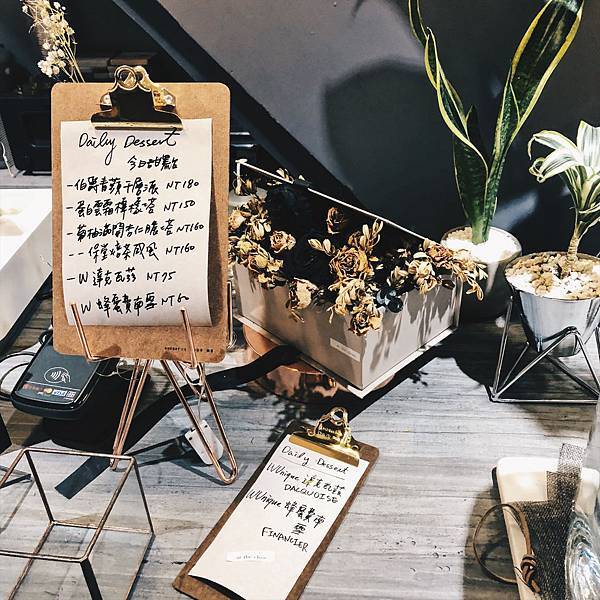 Daily Dessert
今日甜點
-伯爵青蘋千層派 NT180
-蛋白雲霜檸檬塔 NT150
NT160
NT160
-W 達克瓦茲 NT75
-W 蜂蜜費南雪 NT60
Daily Dessert
WUnique 達克瓦茲
DACQUOISE
WUnique 蜂蜜費南
雪
FINANCIER